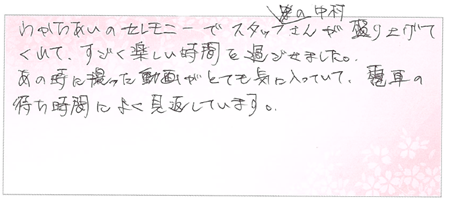 男の中村
わかちあいのセレモニーでスタッフさんが盛り上げて
くれて、すごく楽しい時間を過ごせました。
あの時に撮った動画がとても気に入っていて、電車の
待ち時間によく見返しています。